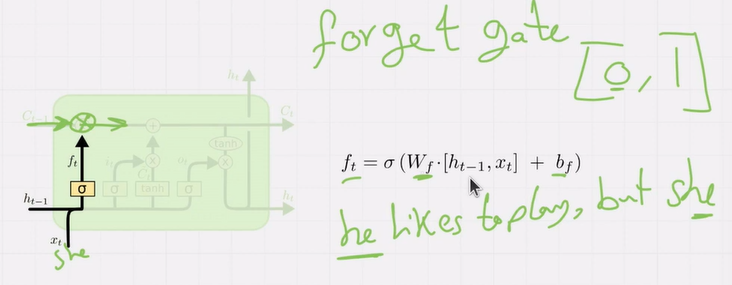 forget gate
[0, 1]
h_t
C_{t-1}
C_t
tanh
f_t
i_t
o_t
σ
σ
tanh
σ
h_{t-1}
h_t
x_t
she
f_t = σ (W_f·[h_{t-1}, x_t] + b_f)
he likes to play, but she